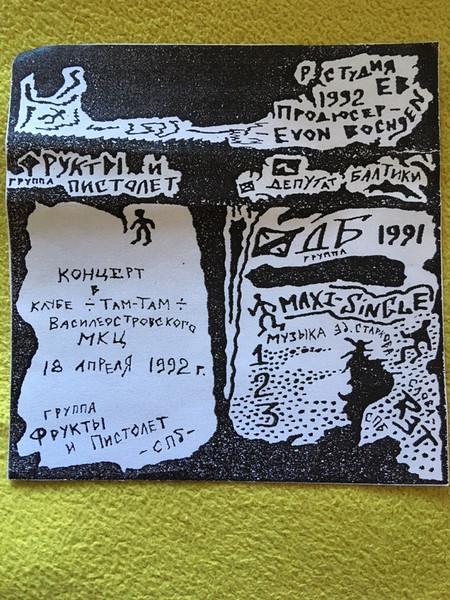 Р СТУДИЯ
1992 ЕВ
ПРОДЮСЕР-
EVON BOCHGEN
ФРУКТЫ И
ГРУППА ПИСТОЛЕТ
ДЕПУТАТ БАЛТИКИ
КОНЦЕРТ
В
КЛУБЕ ÷ ТАМ-ТАМ ÷
ВАСИЛЕОСТРОВСКОГО
МКЦ
18 АПРЕЛЯ 1992 г.
ГРУППА
ФРУКТЫ
И ПИСТОЛЕТ
-СПб-
ДБ 1991
ГРУППА
MAXI-SINGLE
МУЗЫКА ЭД. СТАРКОВА
1
2
3
СЛОВА
РЭТ
СПБ